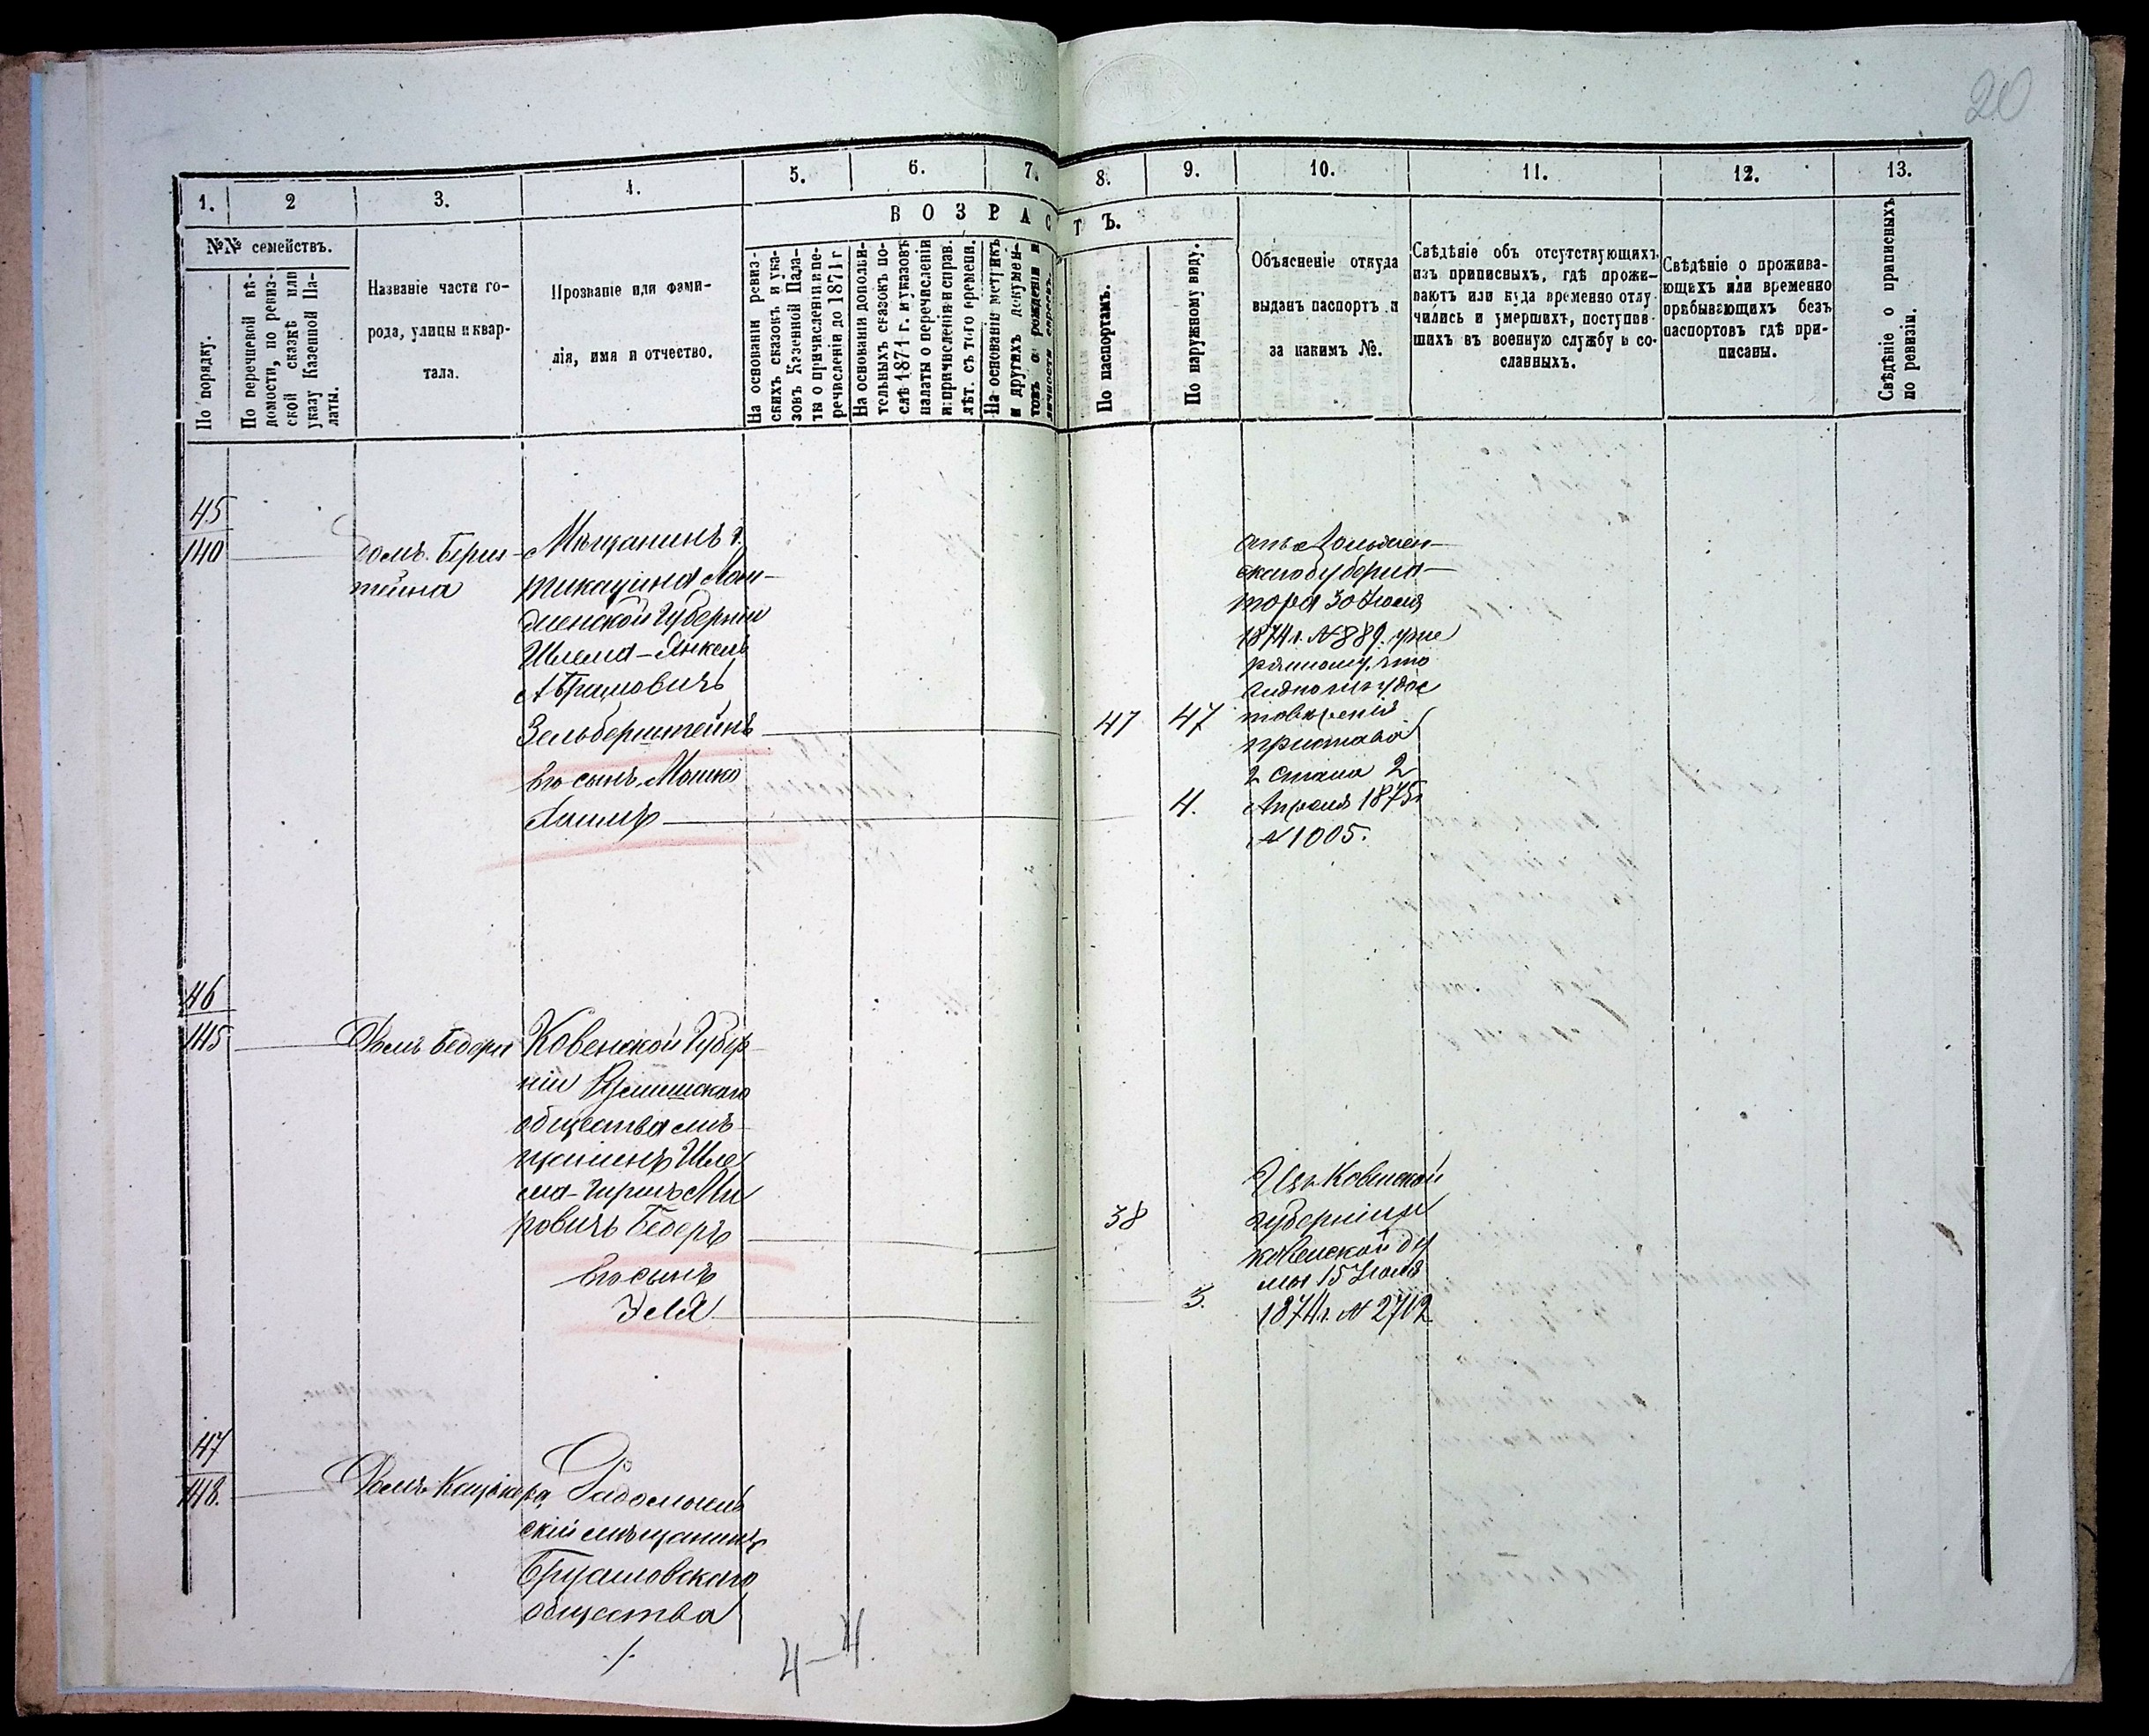 20
1.
2
3.
4.
5.
6.
7.
8.
9.
10.
11.
12.
13.
ВОЗРАСТЪ.
№№ семействъ.
По порядку.
По перечневой вѣ-
домости, по ревиз-
ской сказкѣ или
указу Казенной Па-
латы.
Названіе части го-
рода, улицы и квар-
тала.
Прозваніе или фами-
лія, имя и отчество.
На основаніи ревиз-
скихъ сказокъ и ука-
зовъ Казенной Пала-
ты о причисленіи и пе-
речисленіи до 1871 г.
На основаніи дополни-
тельныхъ сказокъ по-
слѣ 1871 г. и указовъ
палаты о перечисленіи
и причисленіи и справ.
лѣт. съ того времени.
На основаніи метрикъ
и другихъ докумен-
товъ о рожденіи и
личности евреевъ.
По паспортамъ.
По наружному виду.
Объясненіе откуда
выданъ паспортъ и
за какимъ №.
Свѣдѣніе объ отсутствующихъ
изъ приписныхъ, гдѣ прожи-
ваютъ или куда временно отлу-
чились и умершихъ, поступив-
шихъ въ военную службу и со-
сланныхъ.
Свѣдѣніе о прожива-
ющихъ или временно
пребывающихъ безъ
паспортовъ гдѣ при-
писаны.
Свѣдѣніе о приписныхъ
по ревизіи.
45
140
домъ Берш-
тейна
Мѣщанинъ г.
Лом-
жинской Губерніи
Шлема-Янкель
Абрамовичъ
Зельберштейнъ
47
47
его сынъ Мошко
4.
отъ Ломжин-
скаго Губерна-
тора 30 Іюля
1874 г. № 889.
пристава
2 стана 2
Апреля 1875 г
№ 1005.
46
145
Домъ Бедера
Ковенской Губер-
ніи
общества мѣ-
щанинъ Шле
ма-Гиршъ Ми
ровичъ Бедеръ
38
его сынъ
Эля
3.
Изъ Ковенской
губерніи
ковенской ду
мы 15 Іюля
1874 г. № 2712
47
148.
Домъ Кацнера
Радомысль
скій мѣщанинъ
Брусиловскаго
общества
./.
4-4.